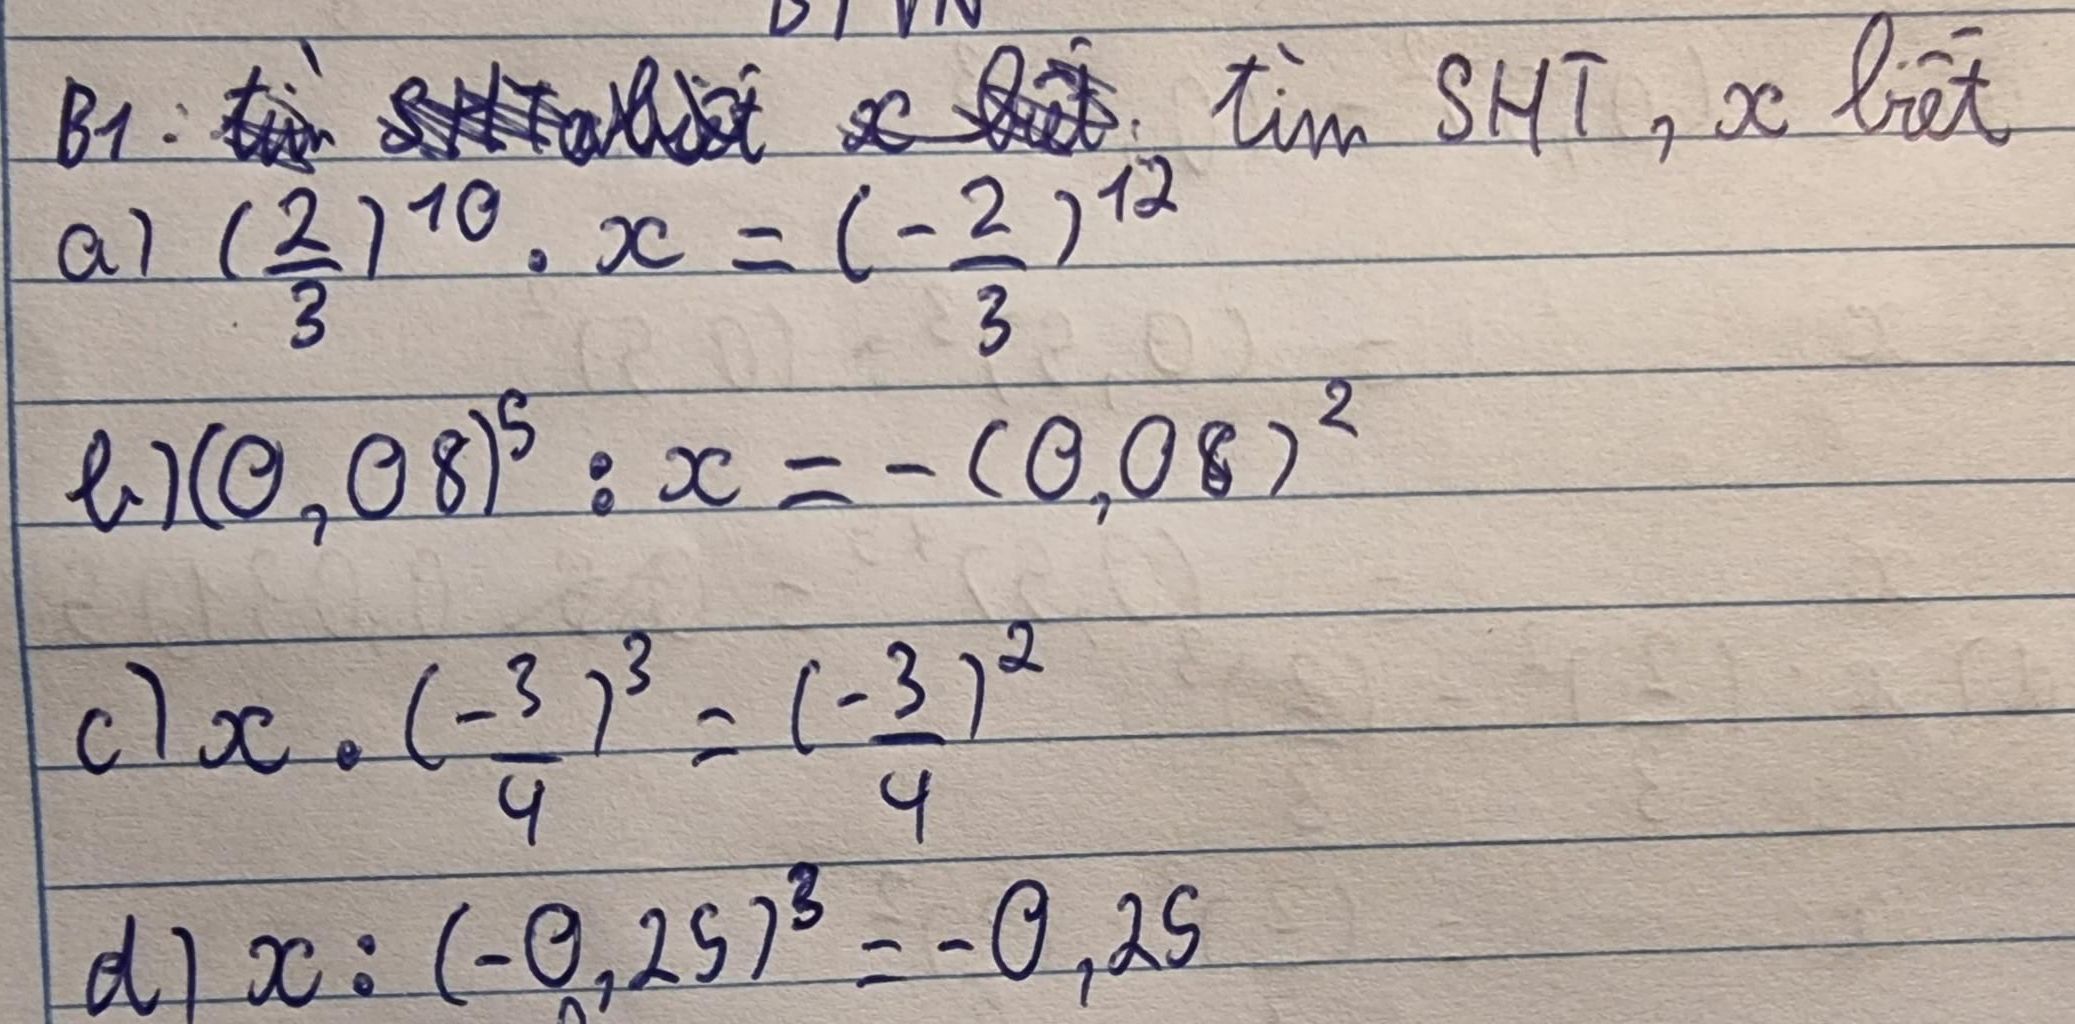 BTVN
B1: tìm SHT, x biết
a) (2/3)^10 . x = (-2/3)^12
b) (0,08)^5 : x = -(0,08)^2
c) x . (-3/4)^3 = (-3/4)^2
d) x : (-0,25)^3 = -0,25